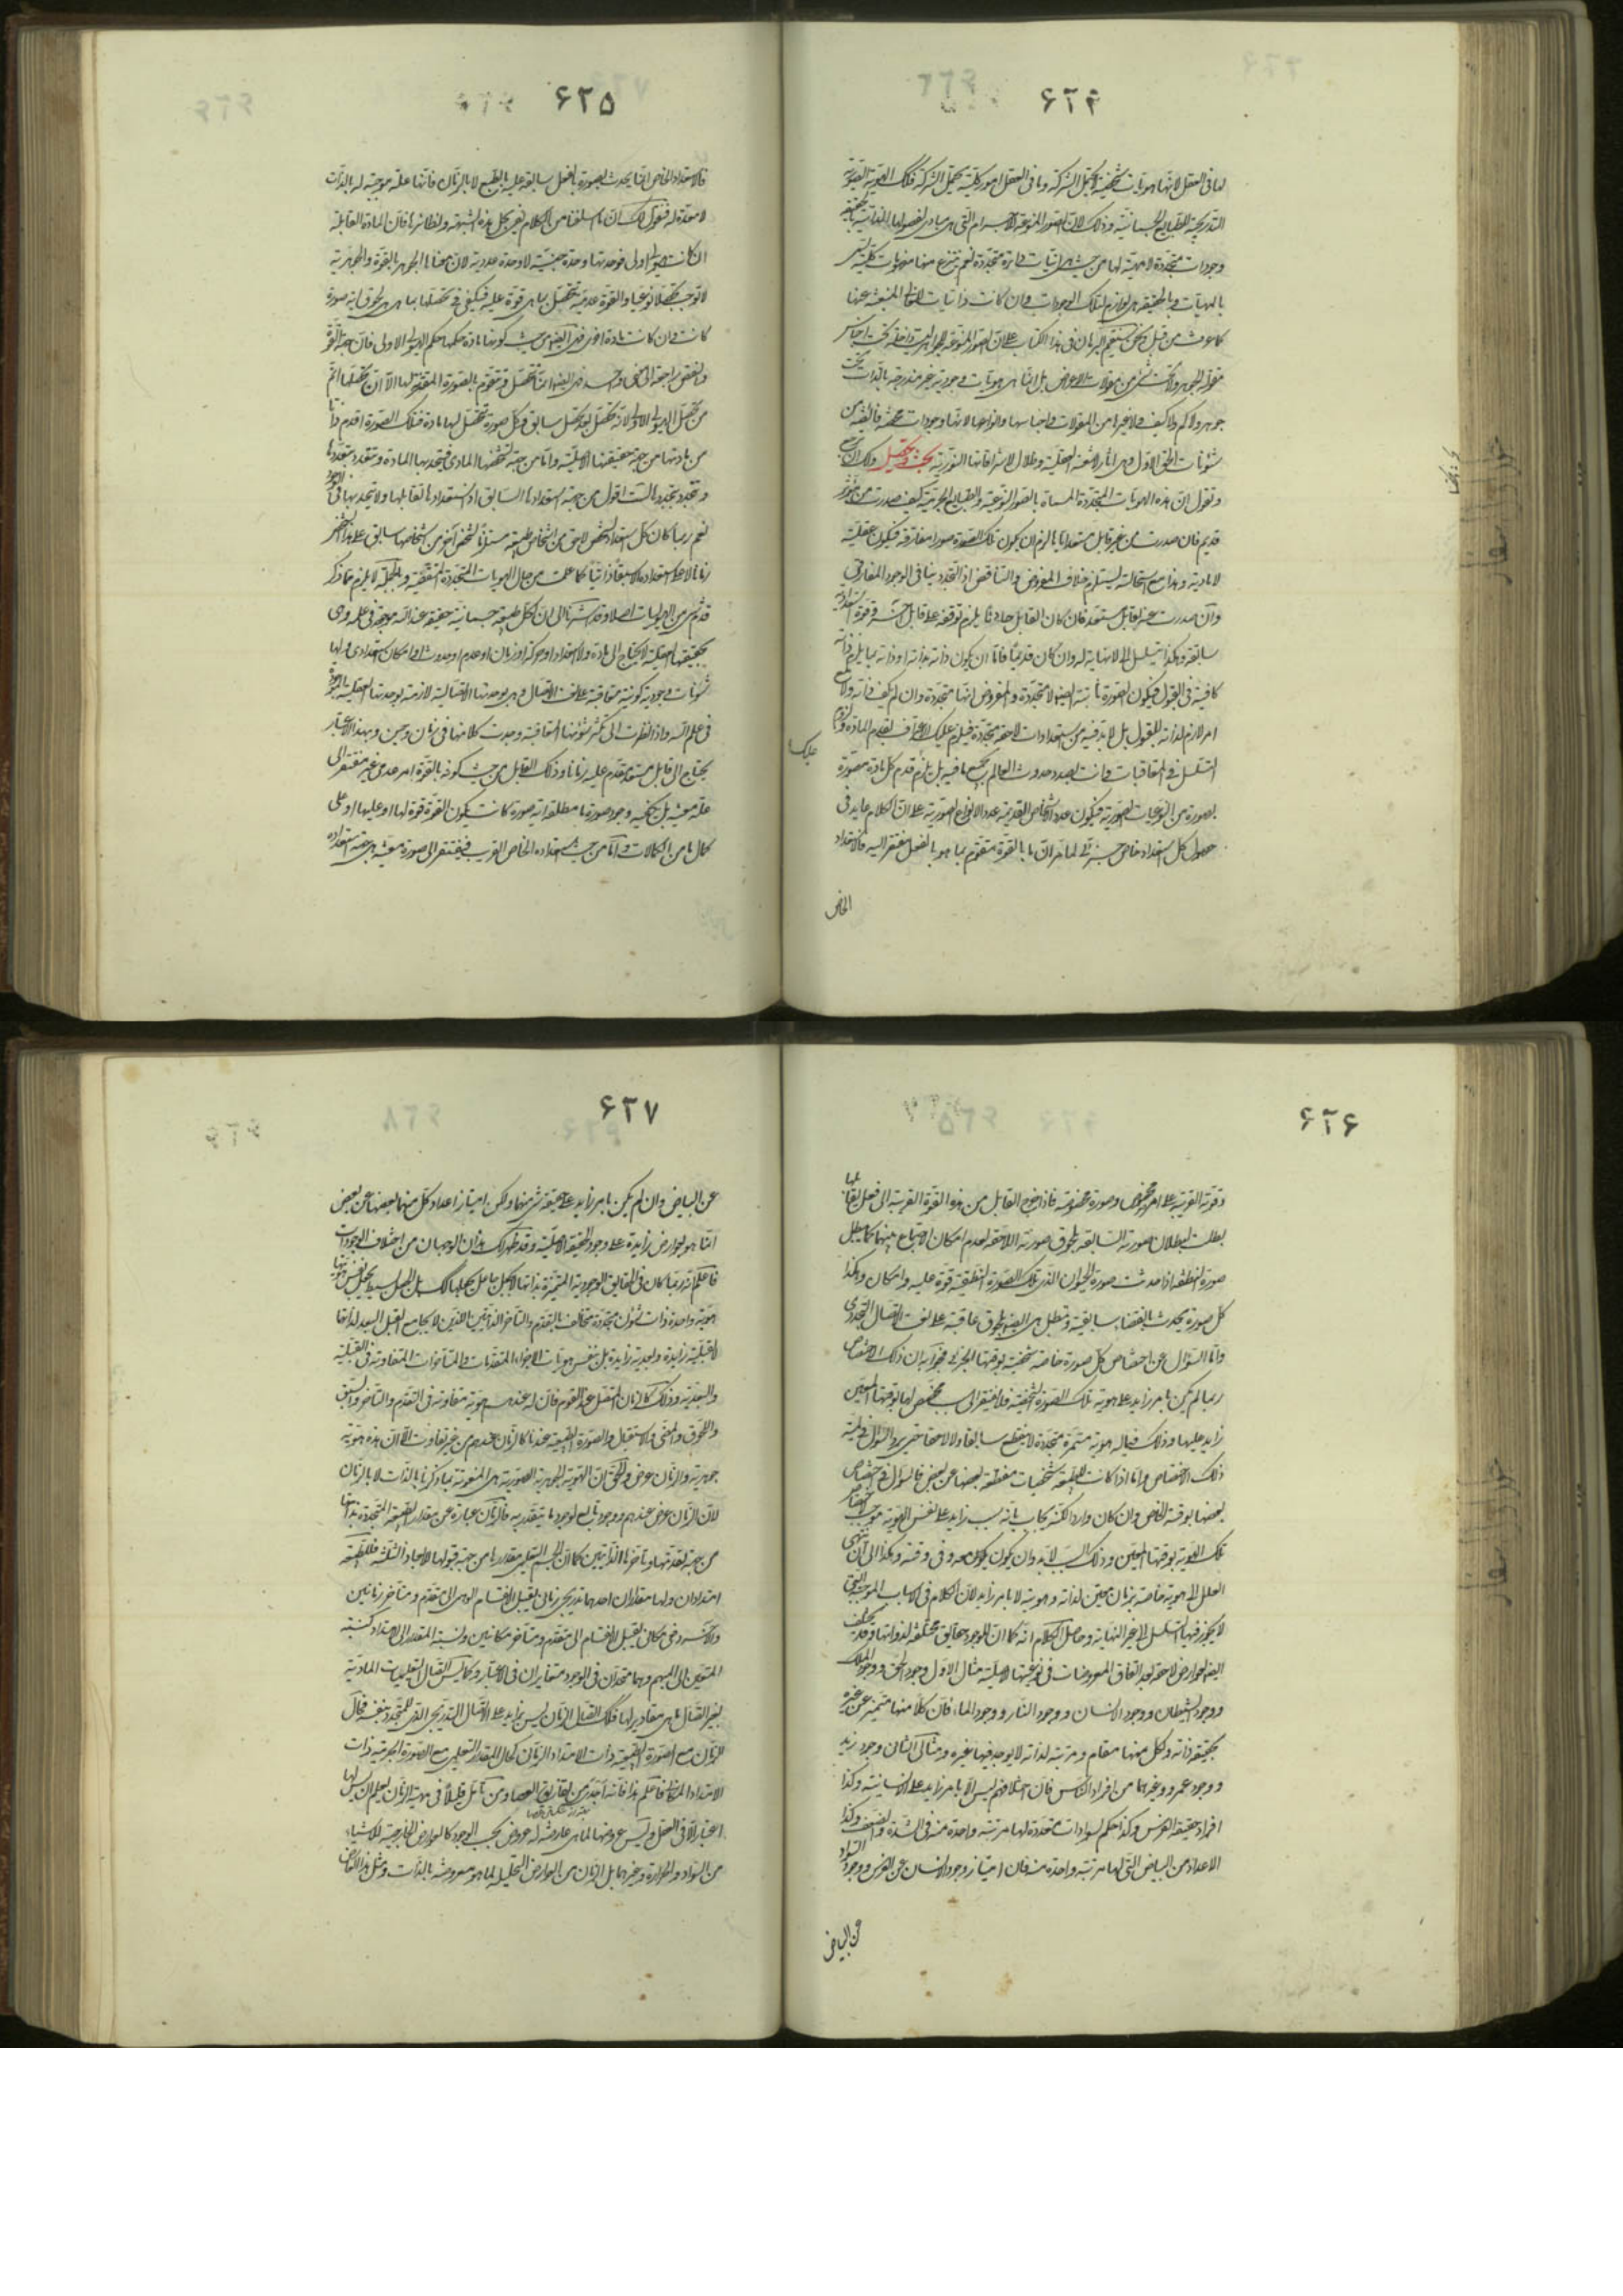 ۶۲۴
لها في العقل لانها هويات شخصية لا يحتمل الشركة وما في العقل امور كلية يحتمل الشركة فتلك الهوية الصورية
التدريجية للطبايع الجسمانية وذلك لان الصور المنوعة للاجسام التي هي مبادي لفصولها الذاتية بالحقيقة
وجودات متجددة لا مهية لها من حيث هي انيات دائرة متجددة نعم ينتزع منها مفهومات كلية تسمى
بالمهيات وبالحقيقة هي لوازم لتلك الوجودات وان كانت ذاتيات للمعاني المنبعثة عنها
كما عرفت من قبل ونحن سنقيم البرهان في هذا الكتاب على ان الصور المنوعة للجواهر ليست داخلة تحت اجناس
مقولة الجوهر ولا تحت شيء من مقولات الاعراض بل انما هي هويات وجودية غير مندرجة بالذات تحت
جوهر ولا كم ولا كيف ولا غيرها من المقولات واجناسها وانواعها لانها وجودات محضة فائضة من
شئونات الحق الاول وهي اثار لاشعته العقلية وظلال لاشراقاتها النورية بحث وتحصيل ولك ان ترجع
وتقول ان هذه الهويات المتجددة المسماة بالصور النوعية والطبايع الجرمية كيف صدرت من مؤثر
قديم فان صدرت من غير قابل مستعد اياها لزم ان يكون تلك الصورة صورا مفارقة فيكون عقلية
لا مادية وهذا مع استحالته يستلزم خلاف المفروض والتناقض اذ التجدد ينافي الوجود المفارقي
وان صدرت عن قابل مستعد فان كان القابل حادثا يلزم توقفه على قابل آخر وقوة استعدادية
سابقة وهكذا يتسلسل الى لا نهاية له وان كان قديما فاما ان يكون ذاته بذاته او ذاته بما يلزم ذاته
كافية في القبول فيكون الصورة ثابتة ايضا لا متجددة والمفروض انها متجددة وان لم يكف ذاته ولا مع
امر لازم لذاته للقبول بل لا بد فيه من استعدادات لاحقة متجددة فيلزم عليك الاعتراف بقدم المادة ولزوم
التسلسل في المتعاقبات وانت بصدد حدوث العالم بجميع ما فيه بل يلزم قدم كل مادة مصورة
بصورة من النوعيات الصورية فيكون عدد الاشخاص القديمة عدد الانواع الصورية على ان الكلام عايد في
حصول كل استعداد خاص جزئي لما مر ان ما بالقوة متقوم بما هو بالفعل مفتقر اليه فالاستعداد
الخاص
۶۲۵
فالاستعداد الخاص انما يحدث بصورة بالفعل سابقة عليه بالطبع لا بالزمان فانها علة موجبة له بالذات
لا معدة له فنقول لك ان ما اسلفنا من الكلام يفي بحل هذه الشبهة ونظائرها فان المادة القابلة
ان كانت هيولى اولى فوحدتها وحدة جنسية لا وحدة عددية لان معناها الجوهر بالقوة والجوهرية
لا توجب تحصلا نوعيا والقوة عدمية تتحصل بما هي قوة عليه فيكفي في تحصلها بما هي هي لحوق اية صورة
كانت وان كانت مادة اخرى فهي ايضا من حيث كونها مادة حكمها حكم الهيولى الاولى فان جهة القوة
والنقص راجعة الى معنى واحد فهي ايضا انما تتحصل وتتقوم بالصورة المنوعة لها الا ان تحصلها اتم
من تحصل الهيولى الاولى لانه تحصل بعد تحصل سابق وكل صورة تحصل لها مادة فتلك الصورة اقدم ذاتا
من مادتها من جهة حقيقتها الاصلية واما من جهة تشخصها المادي فتتحد بها المادة وتتعدد بتعددها
وتتجدد بتجددها لست اقول من جهة استعدادها السابق اذ استعدادها تقابلها ولا تتحد بها في الوجود
نعم ربما كان كل استعداد لشخص لاحق من اشخاص طبيعة مستلزما لشخص آخر من اشخاصها سابق على هذا الشخص
زمانا لاحقا استعداده لا سبقا ذاتيا كما علمت من حال الهويات المتجددة المتقضية وبالجملة لا يلزم مما ذكر
قدم شيء من الهيوليات اصلا وقد اشرنا الى ان لكل طبيعة جسمانية حقيقة عند الله موجودة في علمه وهي
بحقيقتها العقلية لا يحتاج الى مادة ولا استعداد او حركة او زمان او عدم او حدوث او امكان استعدادي ولها
شئونات وجودية كونية متعاقبة على نعت الاتصال وهي بوحدتها الاتصالية لازمة لوحدتها العقلية الموجودة
في علم الله واذا نظرت الى تكثر شئونها المتعاقبة وجدت كلا منها في زمان وحين وبهذا الاعتبار
يحتاج الى قابل مستعد يتقدم عليه زمانا وذلك القابل من حيث كونه بالقوة امر عدمي غير مفتقر الى
علة معينة بل يكفيه وجود صورة ما مطلقا اية صورة كانت يكون القوة قوة لها او عليها او على
كمال ما من الكمالات واما من حيث استعداده الخاص القريب فيفتقر الى صورة معينة هي جهة استعداده
۶۲۶
وقوته القريبة على امر مخصوص وصورة مخصوصة فاذا خرج القابل من هذه القوة القريبة الى فعل يقابلها
بطلت لبطلان صورته السابقة بلحوق صورته اللاحقة لعدم امكان الاجتماع بينهما كما يبطل
صورة النطفة اذا حدثت صورة الحيوان الذي تلك الصورة النطفية قوة عليه وامكان وهكذا
كل صورة تحدث بانقضاء سابقة وتبطل هي ايضا بلحوق عاقبة على نعت الاتصال التجددي
واما السؤال عن اختصاص كل صورة خاصة شخصية بوقتها الجزئي فجوابه ان ذلك الاختصاص
ربما لم يكن بامر زايد على هوية تلك الصورة الشخصية فلا يفتقر الى سبب مخصص لها بوقتها المعين
زايد عليها وذلك فيما له هوية مستمرة متجددة لا ينقطع سابقا ولا لاحقا حتى يرد السؤال في لمية
ذلك الاختصاص واما اذا كانت للطبيعة شخصيات منقطعة بعضها عن بعض فالسؤال في اختصاص
بعضها بوقته الخاص وان كان واردا لكنه يجاب بانه بسبب زايد على نفس الهوية موجب لاختصاص
تلك الهوية بوقتها المعين وذلك السبب لا بد وان يكون يكون معه وفي وقته وهكذا الى ان ينتهي
العلل الى هوية خاصة بزمان معين لذاته وهويته لا بامر زايد لان الكلام في الاسباب الموجبة التي
لا يجوز فيها التسلسل الى غير النهاية وحاصل الكلام انه كما ان للوجود حقايق مختلفة لذواتها وقد يختلف
ايضا بعوارض لاحقة بعد اتفاق المعروضات في نوعيتها الاصلية مثال الاول وجود الحق ووجود الملك
ووجود الشيطان ووجود الانسان ووجود النار ووجود الماء فان كلا منها متميز عن غيره
بحقيقة ذاته ولكل منها مقام ومرتبة لذاته لا يوجد فيها غيره ومثال الثاني وجود زيد
ووجود عمرو وغيرهما من افراد الناس فان اختلافهم ليس الا بامر زايد على الانسانية وكذا
افراد حقيقة الفرس وكذا حكم سوادات متعددة لها مرتبة واحدة منه في الشدة والضعف وكذا
الاعداد من البياض التي لها مرتبة واحدة منه فان امتياز وجود الانسان عن الفرس ووجود السواد
عن البياض
۶۲۷
عن البياض وان لم يكن بامر زايد على حقيقة شيء منهما ولكن امتياز اعداد كل منهما بعضها عن بعض
انما هو بعوارض زايدة على وجود الحقيقة الاصلية وقد ظهر لك هذان الوجهان من اختلاف الوجودات
فاعلم انه ربما كان في الحقايق الوجودية المتميزة بذاتها لا بجعل جاعل يجعلها كذلك بل الجعل البسيط يجعل نفس هويتها
هوية واحدة ذات شئون متجددة متخالف بالتقدم والتأخر الذاتيين اللذين لا يجامع القبل البعد لذاتها
لا بقبلية زايدة وبعدية زايدة بل بنفس هويات الاجزاء المتقدمات والمتأخرات المتفاوتة في القبلية
والبعدية وذلك كالزمان المتصل عند القوم فان له عندهم هوية متفاوتة في التقدم والتأخر والسبق
واللحوق والمضي والاستقبال والصورة الطبيعية عندنا كالزمان عندهم من غير تفاوت الا ان هذه هوية
جوهرية والزمان عرض والحق ان الهوية الجوهرية الصورية هي المنعوتة بما ذكرنا بالذات لا بالزمان
لان الزمان عرض عندهم ووجوده تابع لوجود ما يتقدر به فالزمان عبارة عن مقدار الطبيعة المتجددة بذاتها
من جهة تقدمها وتأخرها الذاتيين كما ان الجسم التعليمي مقدارها من جهة قبولها للابعاد الثلثة فللطبيعة
امتدادان ولها مقداران احدهما تدريجي زماني يقبل الانقسام الوهمي الى متقدم ومتأخر زمانيين
والآخر دفعي مكاني يقبل الانقسام الى متقدم ومتأخر مكانيين ونسبة المقدار الى الامتداد كنسبة
المتعين الى المبهم وهما متحدان في الوجود متغايران في الاعتبار وكما ليس اتصال التعليميات المادية
بغير اتصال ما هي مقاديرها فكذلك اتصال الزمان ليس بزايد على الاتصال التدريجي الذي للمتجدد بنفسه فحال
الزمان مع الصورة الطبيعية ذات الامتداد الزماني كحال المقدار التعليمي مع الصورة الجرمية ذات
الامتداد المكاني فاعلم هذا فانه اجدى من تفاريق العصا ومن تأمل قليلا في مهية الزمان يعلم ان ليس لها
اعتبار الا في العقل وليس عروضها لما هي عارضة له عروضا بحسب الوجود كالعوارض الخارجية للاشياء
من السواد والحرارة وغيرهما بل الزمان من العوارض التحليلية لما هو معروضه بالذات ومثل هذا العارض